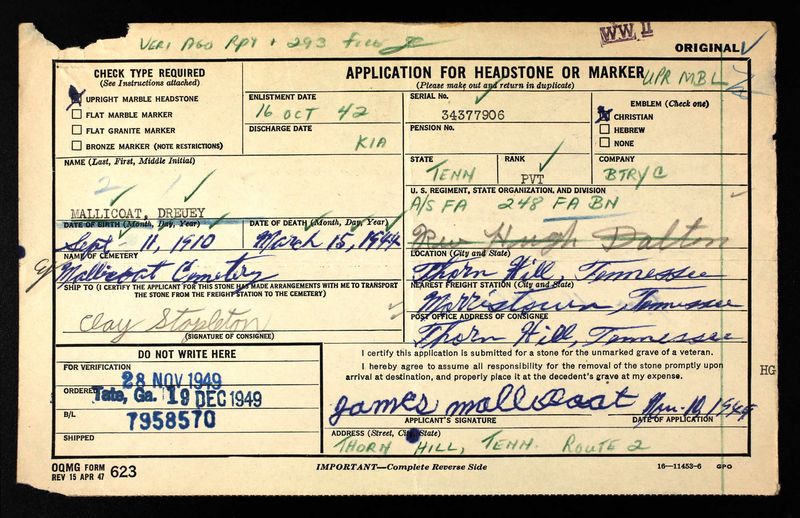 VERI AGO RPT + 293 FILE
WW II
ORIGINAL
CHECK TYPE REQUIRED
(See Instructions attached)
UPRIGHT MARBLE HEADSTONE
FLAT MARBLE MARKER
FLAT GRANITE MARKER
BRONZE MARKER (NOTE RESTRICTIONS)
APPLICATION FOR HEADSTONE OR MARKER
UPR MBL
(Please make out and return in duplicate)
ENLISTMENT DATE
16 OCT 42
DISCHARGE DATE
KIA
SERIAL No.
34377906
PENSION No.
EMBLEM (Check one)
CHRISTIAN
HEBREW
NONE
NAME (Last, First, Middle Initial)
2 1
MALLICOAT, DREUEY
STATE
TENN
RANK
PVT
COMPANY
BTRY C
U. S. REGIMENT, STATE ORGANIZATION, AND DIVISION
A/S FA 248 FA BN
DATE OF BIRTH (Month, Day, Year)
Sept - 11, 1910
DATE OF DEATH (Month, Day, Year)
March 15, 1944
Rev Hugh Dalton
NAME OF CEMETERY
Mallicoat Cemetery
LOCATION (City and State)
Thorn Hill, Tennessee
SHIP TO (I CERTIFY THE APPLICANT FOR THIS STONE HAS MADE ARRANGEMENTS WITH ME TO TRANSPORT
THE STONE FROM THE FREIGHT STATION TO THE CEMETERY)
Clay Stapleton
(SIGNATURE OF CONSIGNEE)
NEAREST FREIGHT STATION (City and State)
Morristown, Tennessee
POST OFFICE ADDRESS OF CONSIGNEE
Thorn Hill, Tennessee
DO NOT WRITE HERE
FOR VERIFICATION
28 NOV 1949
ORDERED
Tate, Ga. 19 DEC 1949
B/L
7958570
SHIPPED
I certify this application is submitted for a stone for the unmarked grave of a veteran.
I hereby agree to assume all responsibility for the removal of the stone promptly upon
arrival at destination, and properly place it at the decedent's grave at my expense.
HG
James Mallicoat Nov. 10, 1949
APPLICANT'S SIGNATURE
DATE OF APPLICATION
ADDRESS (Street, City, State)
THORN HILL, TENN. ROUTE 2
OQMG FORM
REV 15 APR 47
623
IMPORTANT—Complete Reverse Side
16—11453-6 GPO